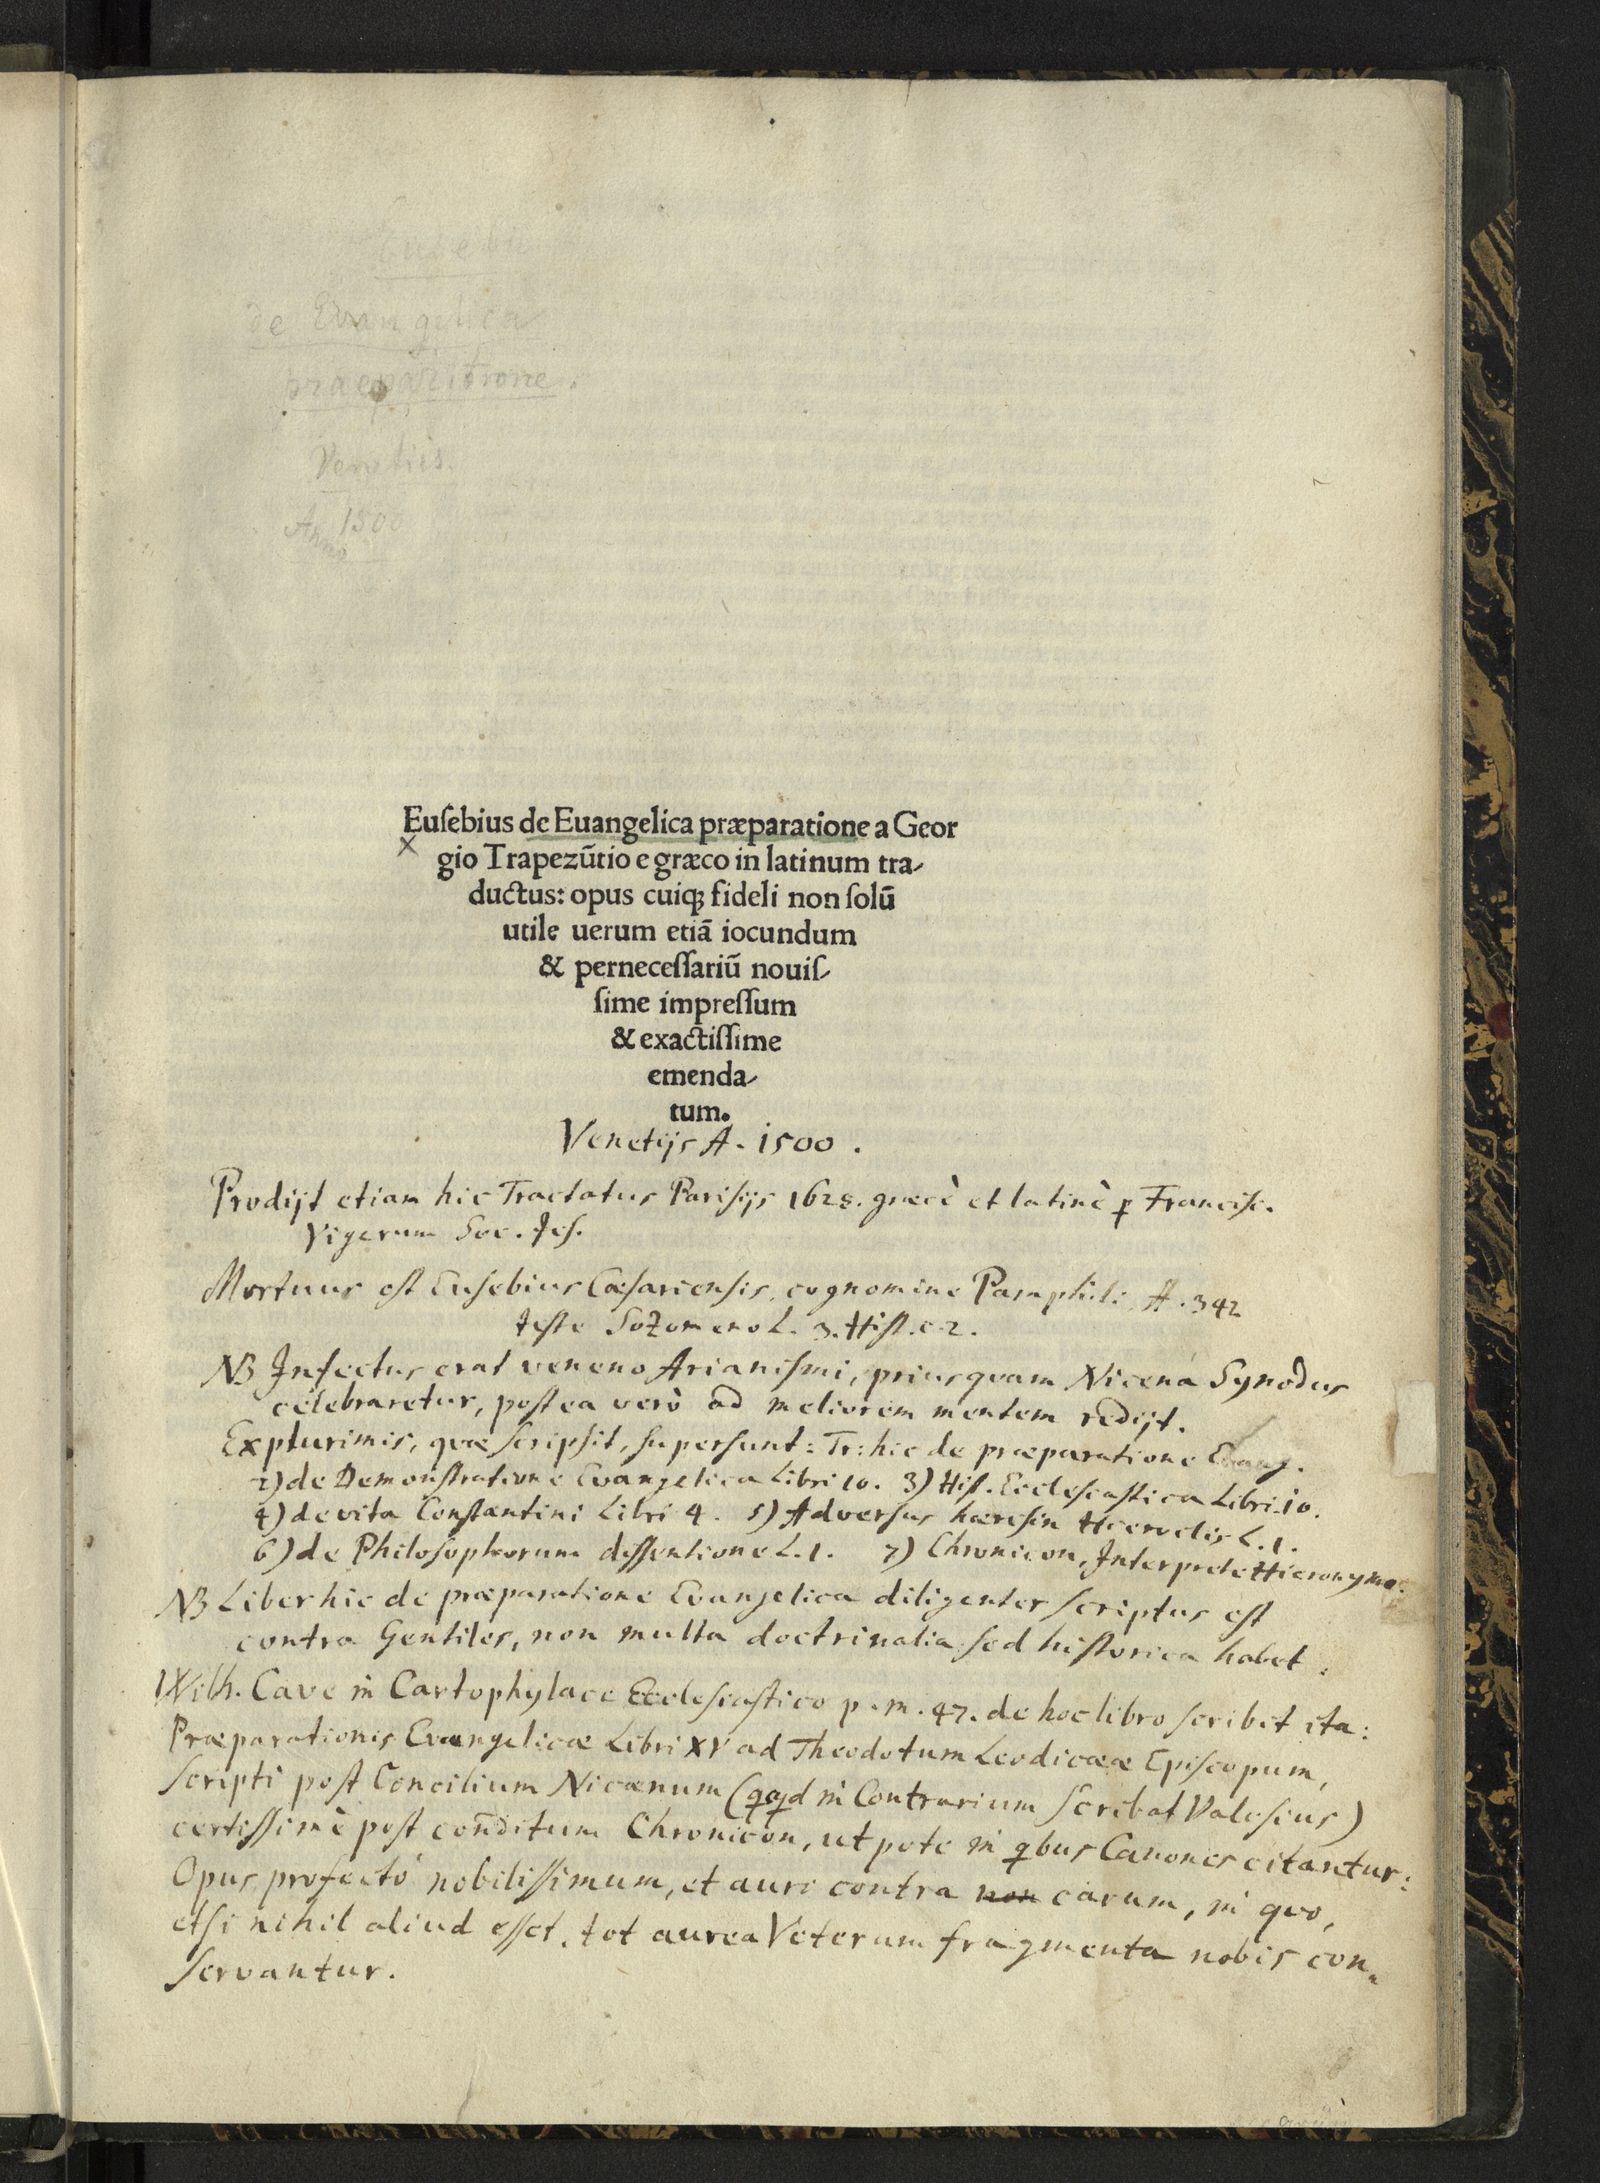 Eusebii
de Evangelica
praeparatione.
Venetiis.
Anno 1500
Euſebius de Euangelica præparatione a Geor
gio Trapezūtio e græco in latinum tra-
ductus: opus cuiqꝫ fideli non ſolū
utile uerum etiā iocundum
& perneceſſariū nouiſ-
ſime impreſſum
& exactiſſime
emenda-
tum.
Venetijs A. 1500.
Prodijt etiam hic Tractatus Parisijs 1628. græcè et latinè ꝑ Francisc.
Vigerum Soc. Jes.
Mortuus est Eusebius Cæsariensis, cognomine Pamphili, A. 342
teste Sozomeno L. 3. Hist. c. 2.
NB Infectus erat veneno Arianismi, priusquam Nicena Synodus
celebraretur, postea verò ad meliorem mentem redijt.
Ex plurimis, quæ scripsit, supersunt: Tr: hic de præparatione Evang.
2) de Demonstratione Evangelica Libri 10. 3) Hist. Ecclesiastica Libri 10.
4) de vita Constantini Libri 4. 5) Adversus hæresin Hieroclis L. 1.
6) de Philosophorum dissentione L. 1. 7) Chronicon, Interprete Hieronymo.
NB Liber hic de præparatione Evangelica diligenter scriptus est
contra Gentiles, non multa doctrinalia sed historica habet.
Wilh. Cave in Cartophylace Ecclesiastico p. m. 47. de hoc libro scribit ita:
Præparationis Evangelicæ Libri XV ad Theodotum Leodicææ Episcopum,
scripti post Concilium Nicænum (qqd in Contrarium scribat Valesius)
certissimè post conditum Chronicon, ut pote in qbus Canones citantur:
Opus profectò nobilissimum, et auro contra non carum, in quo,
etsi nihil aliud esset, tot aurea Veterum fragmenta nobis con-
servantur.